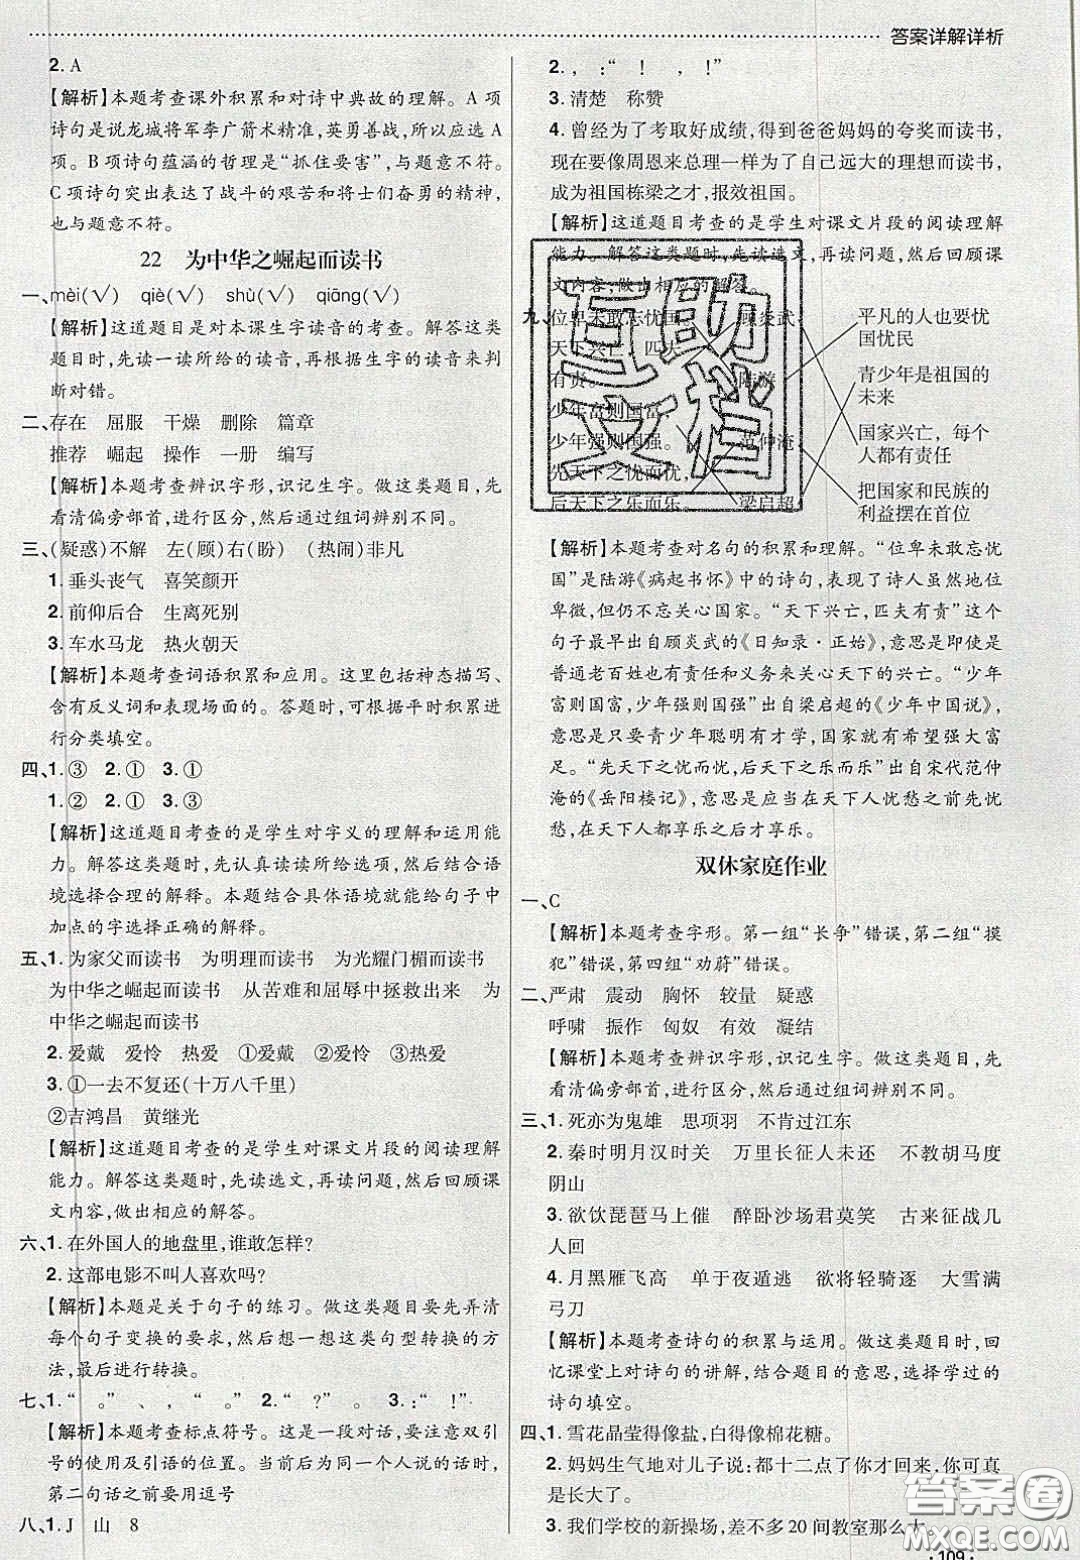 答案详解详析
2. A
【解析】本题考查课外积累和对诗中典故的理解。A 项
诗句是说龙城将军李广箭术精准,英勇善战,所以应选 A
项。B 项诗句蕴涵的哲理是“抓住要害”,与题意不符。
C 项诗句突出表达了战斗的艰苦和将士们奋勇的精神,
也与题意不符。
22 为中华之崛起而读书
一、mèi(√) qiè(√) shù(√) qiāng(√)
【解析】这道题目是对本课生字读音的考查。解答这类
题目时,先读一读所给的读音,再根据生字的读音来判
断对错。
二、存在 屈服 干燥 删除 篇章
推荐 崛起 操作 一册 编写
【解析】本题考查辨识字形,识记生字。做这类题目,先
看清偏旁部首,进行区分,然后通过组词辨别不同。
三、(疑惑)不解 左(顾)右(盼) (热闹)非凡
1. 垂头丧气 喜笑颜开
2. 前仰后合 生离死别
3. 车水马龙 热火朝天
【解析】本题考查词语积累和应用。包括神态描写、
含有反义词和表现场面的。答题时,可根据平时积累
进行分类填空。
四、1. ③ 2. ① 3. ①
1. ② 2. ① 3. ③
【解析】这道题目考查的是学生对字义的理解和运用能
力。解答这类题时,先认真读所给选项,然后结合语
境选择合理的解释。本题结合具体语境就能给句子中
加点的字选择正确的解释。
五、1. 为家父而读书 为明理而读书 为光耀门楣而读书
为中华之崛起而读书 从苦难和屈辱中拯救出来 为
中华之崛起而读书
2. 爱戴 爱怜 热爱 ①爱戴 ②爱怜 ③热爱
3. ①一去不复还(十万八千里)
②吉鸿昌 黄继光
【解析】这道题目考查的是学生对课文片段的阅读理解
能力。解答这类题时,先读选文,再读问题,然后回顾课
文内容,做出相应的解答。
六、1. 在外国人的地盘里,谁敢怎样?
2. 这部电影不叫人喜欢吗?
【解析】本题是关于句子的练习。做这类题目要先弄清
每个句子变换的要求,然后想一想这类句型转换的方
法,最后进行转换。
七、1. “ 。” 、 , “ 。” 2. “ ?”。 3. :“ !”
【解析】本题考查标点符号。这是一段对话,要注意双引
号的使用及引语的位置。当前后为同一个人说的话时,
第二句话之前要用逗号
八、1. J 山 8
2. , :“ ! , !”
3. 清楚 称赞
4. 曾经为了考取好成绩,得到爸爸妈妈的夸奖而读书,
现在要像周恩来总理一样为了自己远大的理想而读书,
成为祖国栋梁之才,报效祖国。
【解析】这道题目考查的是学生对课文片段的阅读理解
能力。解答这类题时,先读选文,再读问题,然后回顾课
文内容,做出相应的解答。
九、位卑未敢忘忧国。 顾炎武 平凡的人也要忧
国忧民
天下兴亡,匹夫
有责。 陆游 青少年是祖国的
未来
少年富则国富,
少年强则国强。 范仲淹 国家兴亡,每个
人都有责任
先天下之忧而忧,
后天下之乐而乐。 梁启超 把国家和民族的
利益摆在首位
互助
文档
【解析】本题考查对名句的积累和理解。“位卑未敢忘忧
国”是陆游《病起书怀》中的诗句,表现了诗人虽然地位
卑微,但仍不忘关心国家。“天下兴亡,匹夫有责”这个
句子最早出自顾炎武的《日知录·正始》,意思是即使是
普通老百姓也有责任和义务来关心天下的兴亡。“少年
富则国富,少年强则国强”这句话出自梁启超的《少年中国说》,
意思是只要青少年聪明有才学,国家就有希望强大富
足。“先天下之忧而忧,后天下之乐而乐”出自宋代范仲
淹的《岳阳楼记》,意思是应当在天下人忧愁之前先忧
愁,在天下人都享乐之后才享乐。
双休家庭作业
一、C
【解析】本题考查字形。第一组“长争”错误,第二组“摸
犯”错误,第四组“劝蔚”错误。
二、严肃 震动 胸怀 较量 疑惑
呼啸 振作 匈奴 有效 凝结
【解析】本题考查辨识字形,识记生字。做这类题目,先
看清偏旁部首,进行区分,然后通过组词辨别不同。
三、1. 死亦为鬼雄 思项羽 不肯过江东
2. 秦时明月汉时关 万里长征人未还 不教胡马度
阴山
3. 欲饮琵琶马上催 醉卧沙场君莫笑 古来征战几
人回
4. 月黑雁飞高 单于夜遁逃 欲将轻骑逐 大雪满
弓刀
【解析】本题考查诗句的积累与运用。做这类题目时,回
忆课堂上对诗句的讲解,结合题目的意思,选择学过的
诗句填空。
四、1. 雪花晶莹得像盐,白得像棉花糖。
2. 妈妈生气地对儿子说:都十二点了你才回来,你可真是
长大了。
3. 我们学校的新操场,差不多 20 间教室那么大。
答案圈
MXQE.COM
·109·